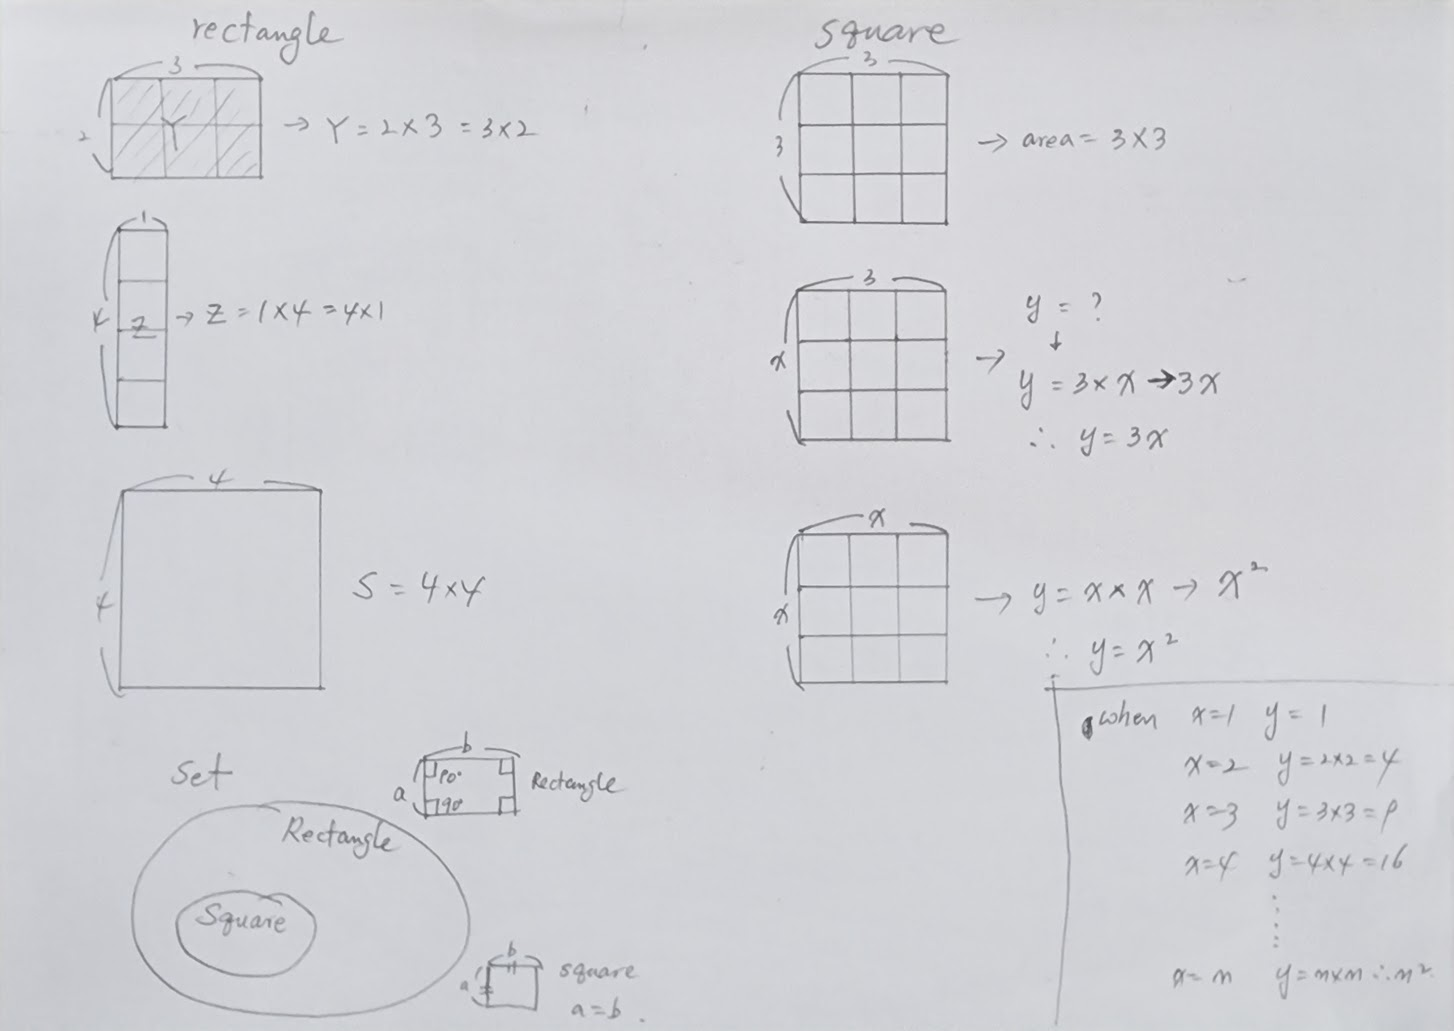 rectangle
3
2
Y
→ Y = 2 × 3 = 3 × 2
1
4
Z
→ Z = 1 × 4 = 4 × 1
4
4
S = 4 × 4
Set
Rectangle
Square
b
a
90°
90°
Rectangle
b
a
square
a = b .
square
3
3
→ area = 3 × 3
3
x
→
y = ?
↓
y = 3 × x → 3x
∴ y = 3x
x
x
→ y = x × x → x²
∴ y = x²
when x=1 y = 1
x=2 y = 2×2 = 4
x=3 y = 3×3 = 9
x=4 y = 4×4 = 16
x= n y = n×n ∴ n²